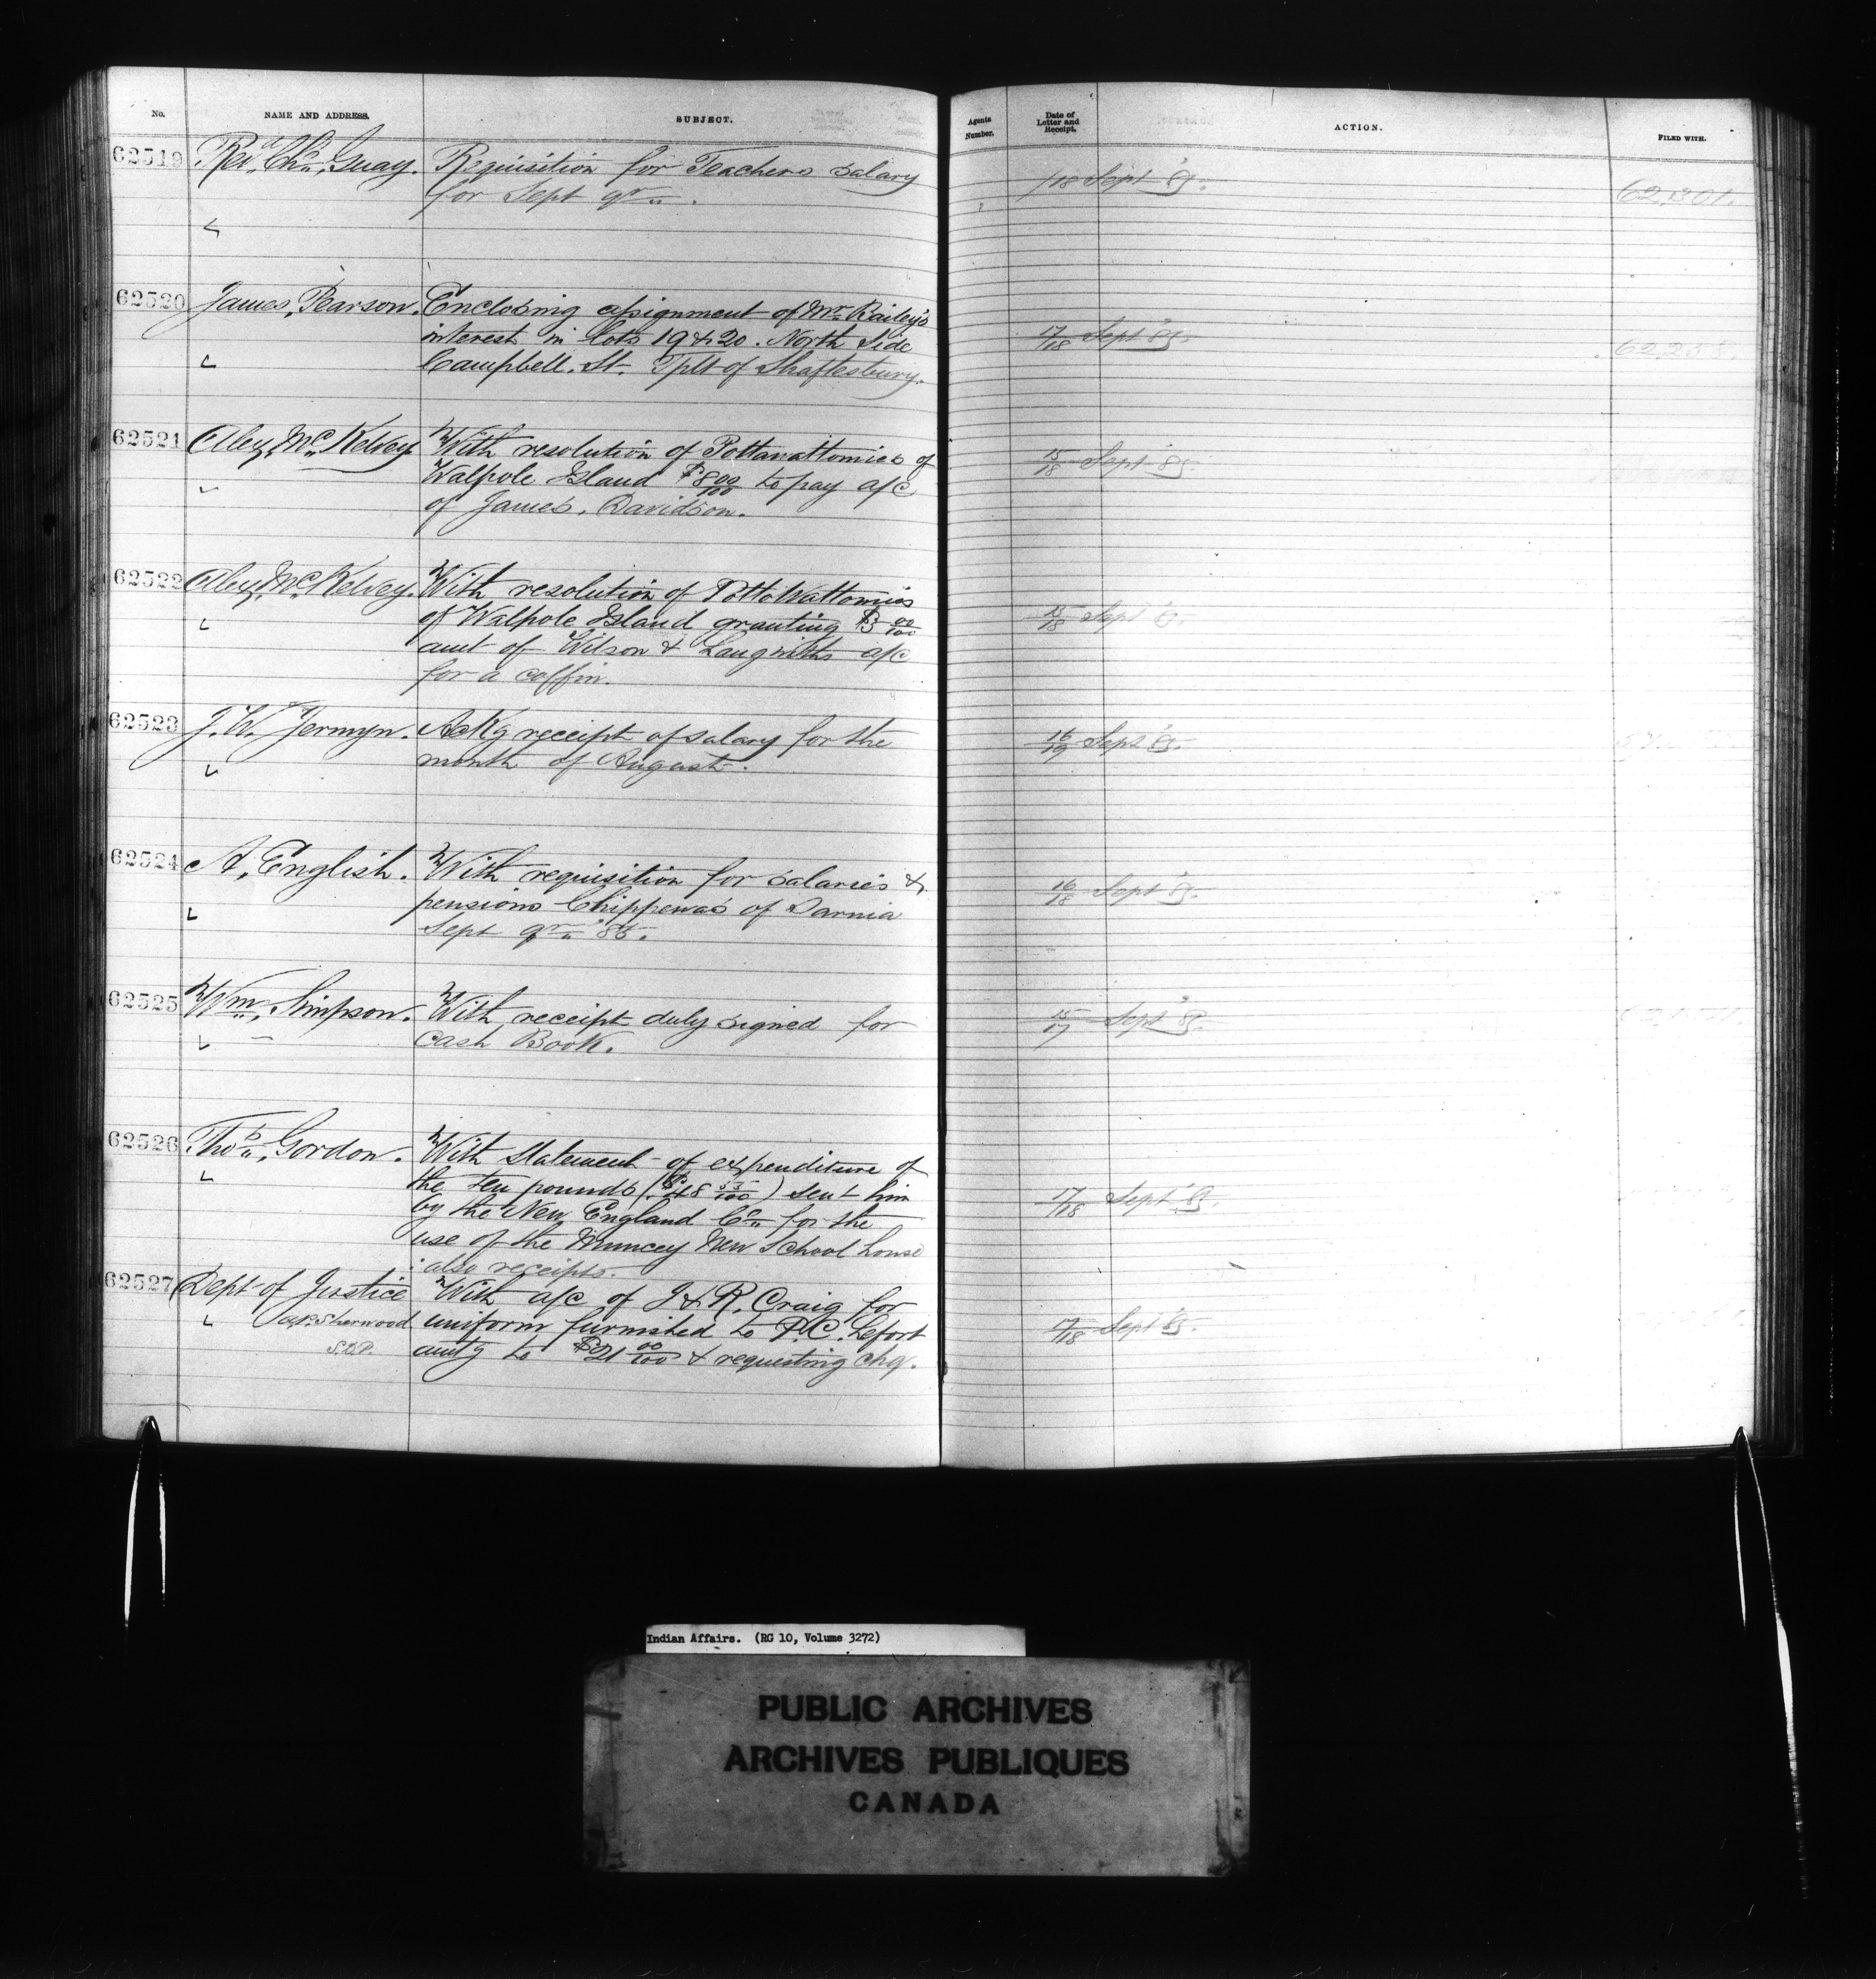 No. NAME AND ADDRESS. SUBJECT. Agents Number. Date of Letter and Receipt. ACTION. FILED WITH.
62519 Revd. Chs. Guay. Requisition for Teachers salary 18 Sept '85. 62,301.
for Sept qr.
62520 James, Pearson. Enclosing assignment of Mr. Bailey's
interest in lots 19 & 20. North Side 17/18 Sept '85. 62,238.
Campbell. St. Tplt of Shaftesbury.
62521 Alex. McKelvey. With resolution of Pottawattomies of
Walpole Island $8 00/100 to pay a/c 15/18 Sept '85.
of James, Davidson.
62522 Alex. McKelvey. With resolution of PottoWattomies
of Walpole Island granting $3 00/100 15/18 Sept '85.
amt of Wilson & Langwiths a/c
for a coffin.
62523 J. W. Jermyn. Ackg receipt of salary for the 16/19 Sept '85.
month of August.
62524 A, English. With requisition for salaries & 16/18 Sept '85.
pensions Chippewas of Sarnia
Sept qr. '85.
62525 Wm, Simpson. With receipt duly signed for 15/17 Sept '85.
Cash Book.
62526 Thos, Gordon. With statement of expenditure of
the ten pounds ($48 55/100) sent him 17/18 Sept '85.
by the New England Co. for the
use of the Muncey New School house
also receipts.
62527 Dept of Justice With a/c of J & R. Craig for
A.P. Sherwood uniform furnished to P.C. Lefort 17/18 Sept '85.
S.D.P. amtg to $21 00/100 & requesting chq.
Indian Affairs. (RG 10, Volume 3272)
PUBLIC ARCHIVES
ARCHIVES PUBLIQUES
CANADA